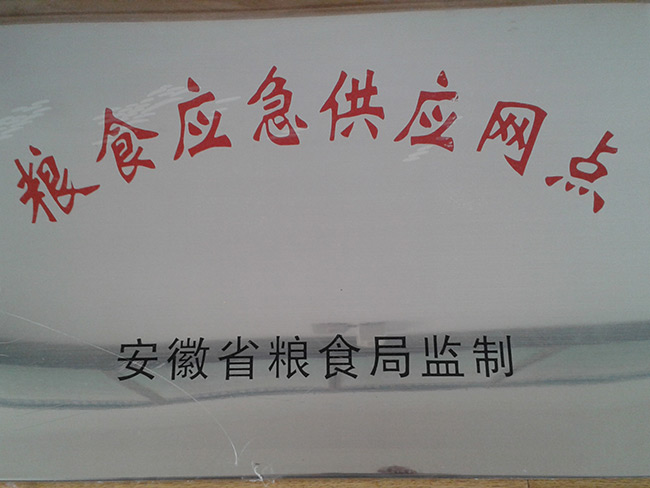 粮食应急供应网点
安徽省粮食局监制